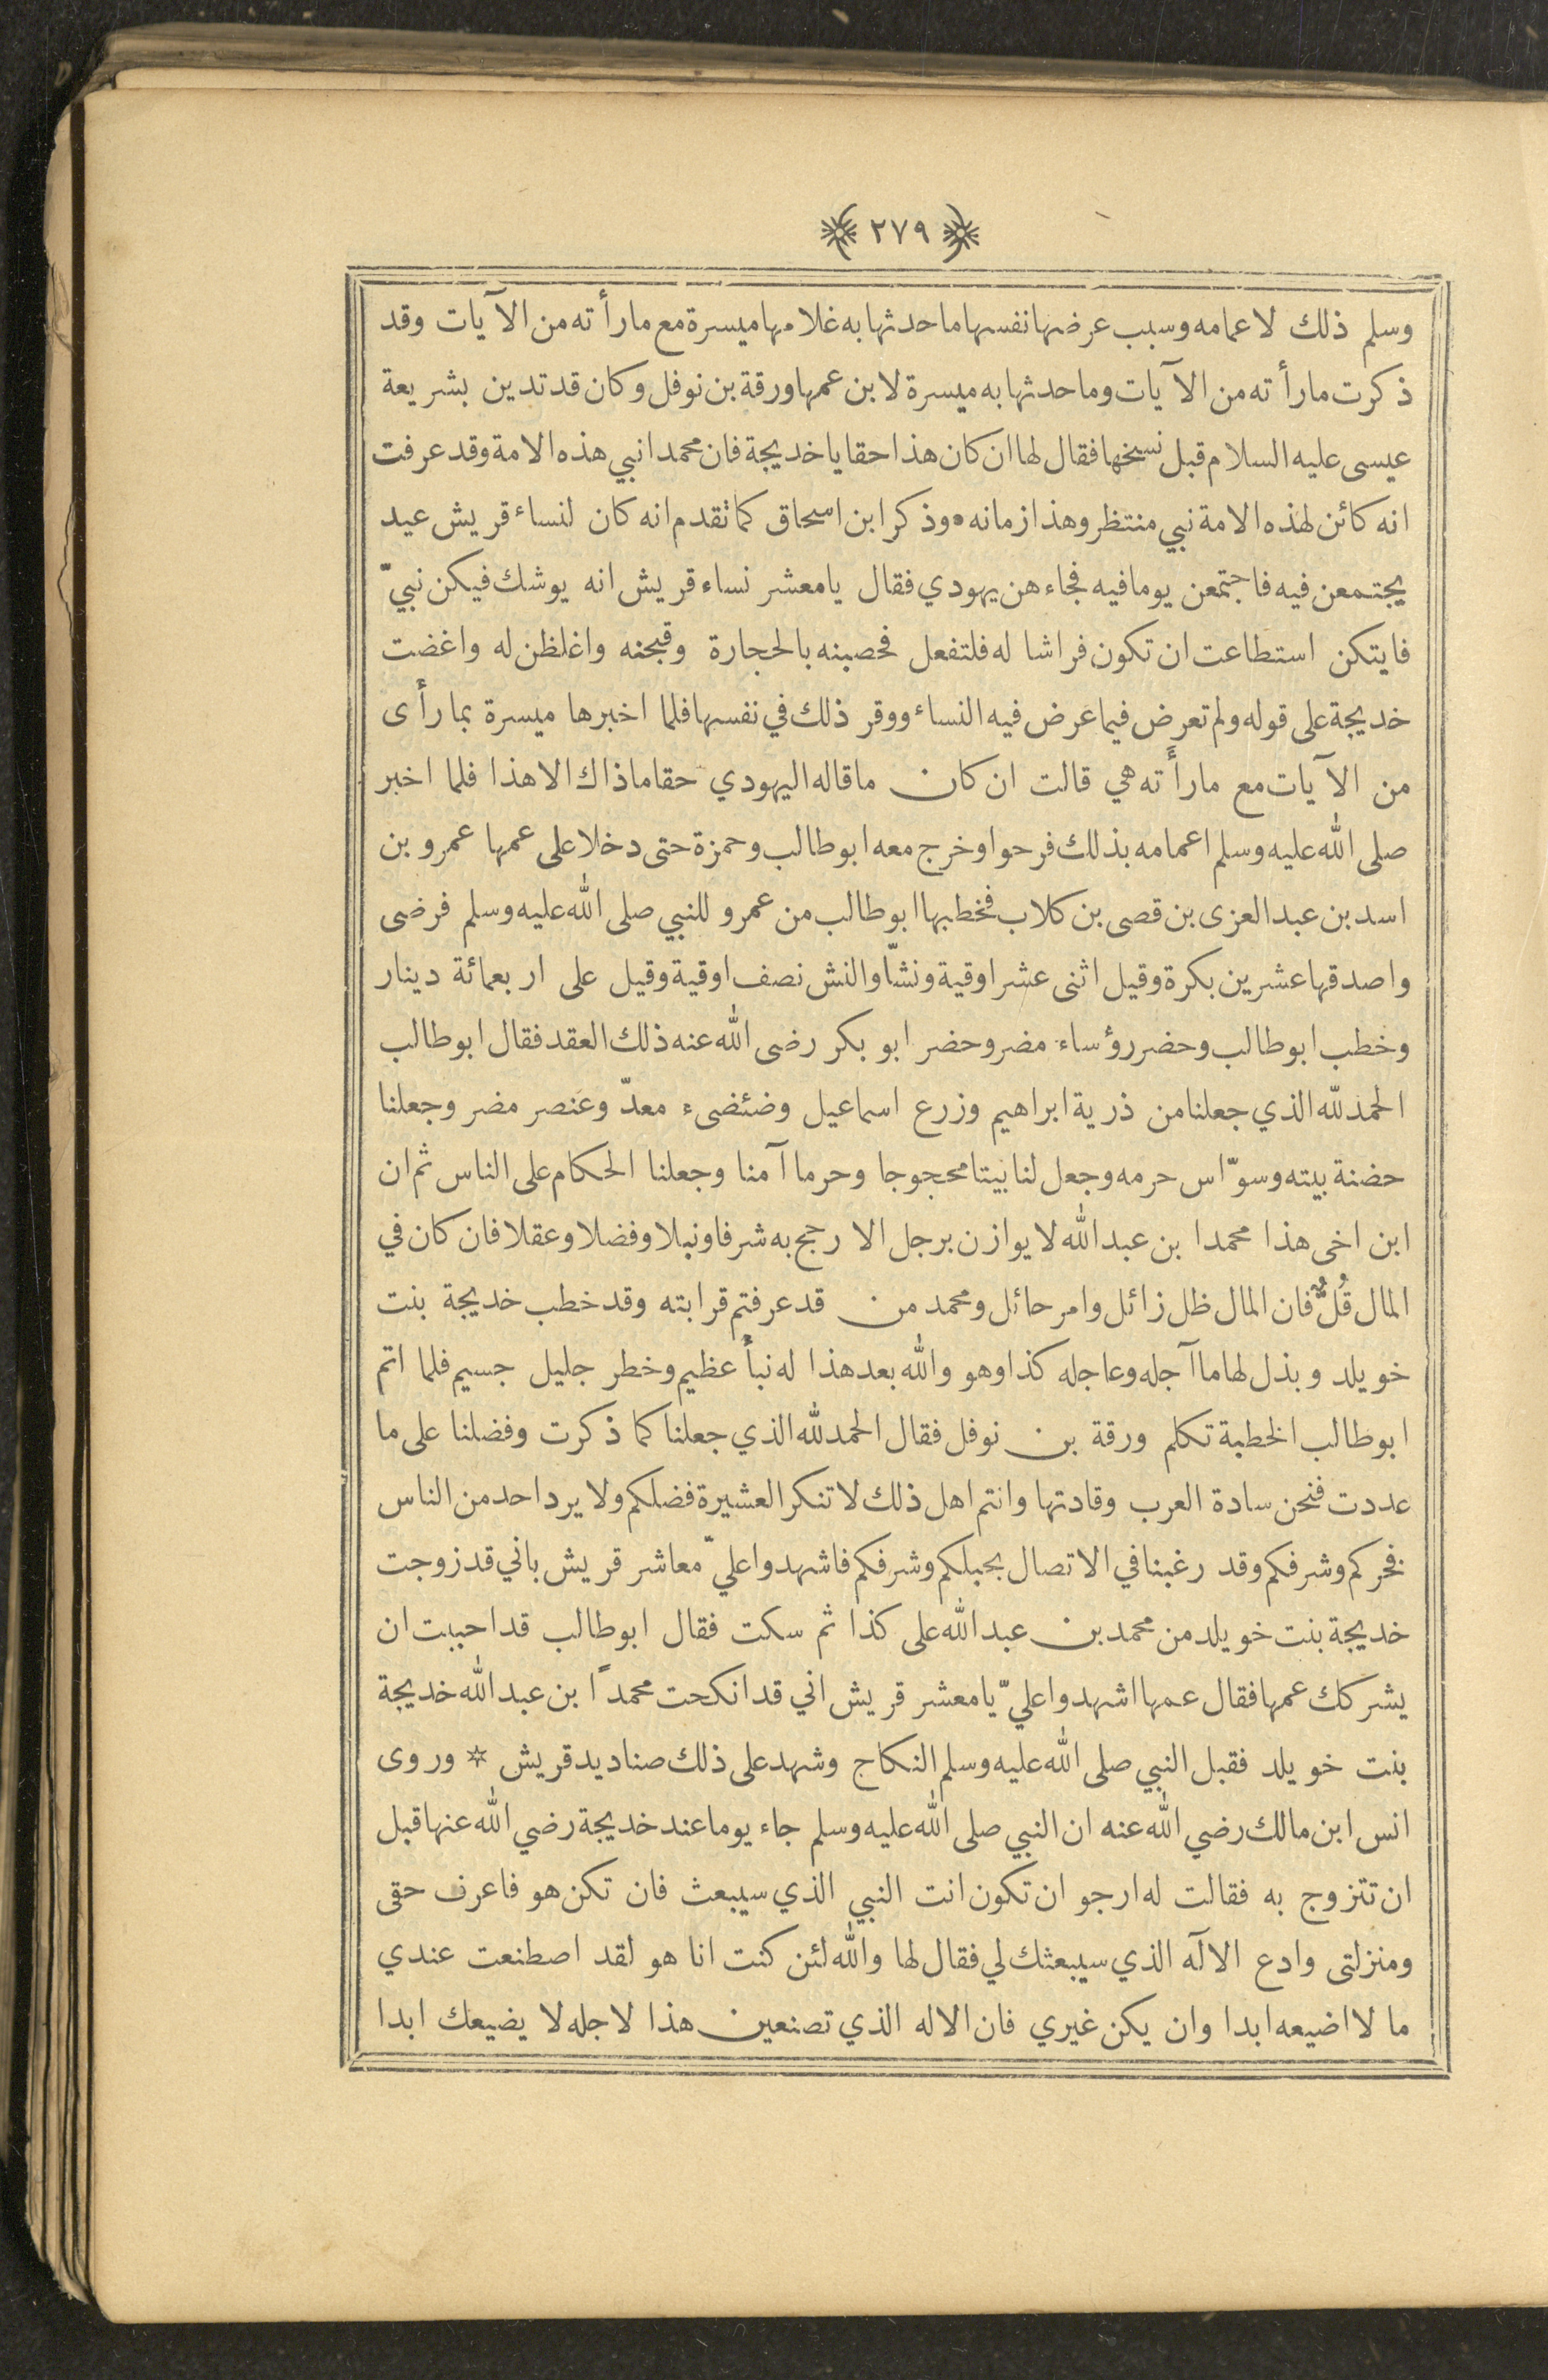 ٢٧٩
وسلم ذلك لاعمامه وسبب عرضها نفسها ما حدثها به غلامها ميسرة مع ما رأته من الآيات وقد
ذكرت ما رأته من الآيات وما حدثها به ميسرة لابن عمها ورقة بن نوفل وكان قد تدين بشريعة
عيسى عليه السلام قبل نسخها فقال لها ان كان هذا حقا يا خديجة فان محمدا نبي هذه الامة وقد عرفت
انه كائن لهذه الامة نبي منتظر وهذا زمانه • وذكر ابن اسحاق كما تقدم انه كان لنساء قريش عيد
يجتمعن فيه فاجتمعن يوما فيه فجاءهن يهودي فقال يا معشر نساء قريش انه يوشك فيكن نبيّ
فايتكن استطاعت ان تكون فراشا له فلتفعل فحصبنه بالحجارة وقبحنه واغلظن له واغضت
خديجة على قوله ولم تعرض فيما عرض فيه النساء ووقر ذلك في نفسها فلما اخبرها ميسرة بما رأى
من الآيات مع ما رأته هي قالت ان كان ما قاله اليهودي حقا ما ذاك الا هذا فلما اخبر
صلى الله عليه وسلم اعمامه بذلك فرحوا وخرج معه ابو طالب وحمزة حتى دخلا على عمها عمرو بن
اسد بن عبد العزى بن قصى بن كلاب فخطبها ابو طالب من عمرو للنبي صلى الله عليه وسلم فرضى
واصدقها عشرين بكرة وقيل اثنى عشر اوقية ونشّا والنش نصف اوقية وقيل على اربعمائة دينار
وخطب ابو طالب وحضر رؤساء مضر وحضر ابو بكر رضى الله عنه ذلك العقد فقال ابو طالب
الحمد لله الذي جعلنا من ذرية ابراهيم وزرع اسماعيل وضئضىء معدّ وعنصر مضر وجعلنا
حضنة بيته وسوّاس حرمه وجعل لنا بيتا محجوجا وحرما آمنا وجعلنا الحكام على الناس ثم ان
ابن اخى هذا محمدا بن عبد الله لا يوازن برجل الا رجح به شرفا ونبلا وفضلا وعقلا فان كان في
المال قُلٌّ فان المال ظل زائل وامر حائل ومحمد من قد عرفتم قرابته وقد خطب خديجة بنت
خويلد وبذل لها ما آجله وعاجله كذا وهو والله بعد هذا له نبأ عظيم وخطر جليل جسيم فلما اتم
ابو طالب الخطبة تكلم ورقة بن نوفل فقال الحمد لله الذي جعلنا كما ذكرت وفضلنا على ما
عددت فنحن سادة العرب وقادتها وانتم اهل ذلك لا تنكر العشيرة فضلكم ولا يرد احد من الناس
فخركم وشرفكم وقد رغبنا في الاتصال بحبلكم وشرفكم فاشهدوا عليّ معاشر قريش باني قد زوجت
خديجة بنت خويلد من محمد بن عبد الله على كذا ثم سكت فقال ابو طالب قد احببت ان
يشركك عمها فقال عمها اشهدوا عليّ يا معشر قريش اني قد انكحت محمدًا بن عبد الله خديجة
بنت خويلد فقبل النبي صلى الله عليه وسلم النكاح وشهد على ذلك صناديد قريش * وروى
انس ابن مالك رضي الله عنه ان النبي صلى الله عليه وسلم جاء يوما عند خديجة رضي الله عنها قبل
ان تتزوج به فقالت له ارجو ان تكون انت النبي الذي سيبعث فان تكن هو فاعرف حقى
ومنزلتى وادع الآله الذي سيبعثك لي فقال لها والله لئن كنت انا هو لقد اصطنعت عندي
ما لا اضيعه ابدا وان يكن غيري فان الاله الذي تصنعين هذا لاجله لا يضيعك ابدا